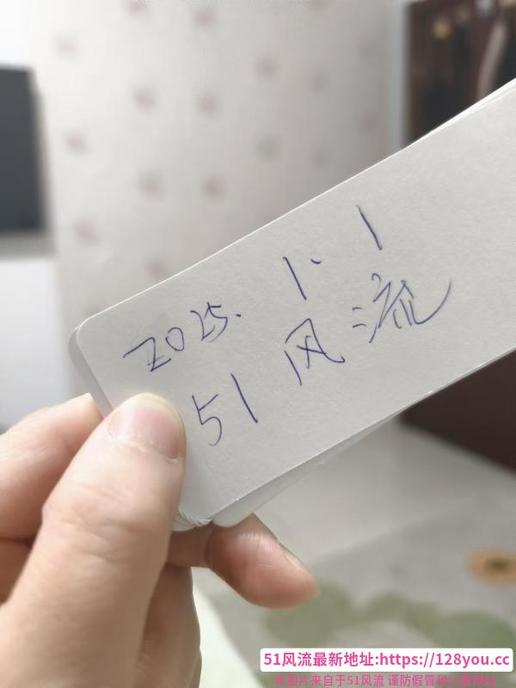 2025. 1. 1
51 风流
51风流最新地址:https://128you.cc
本图片来自于51风流 谨防假冒